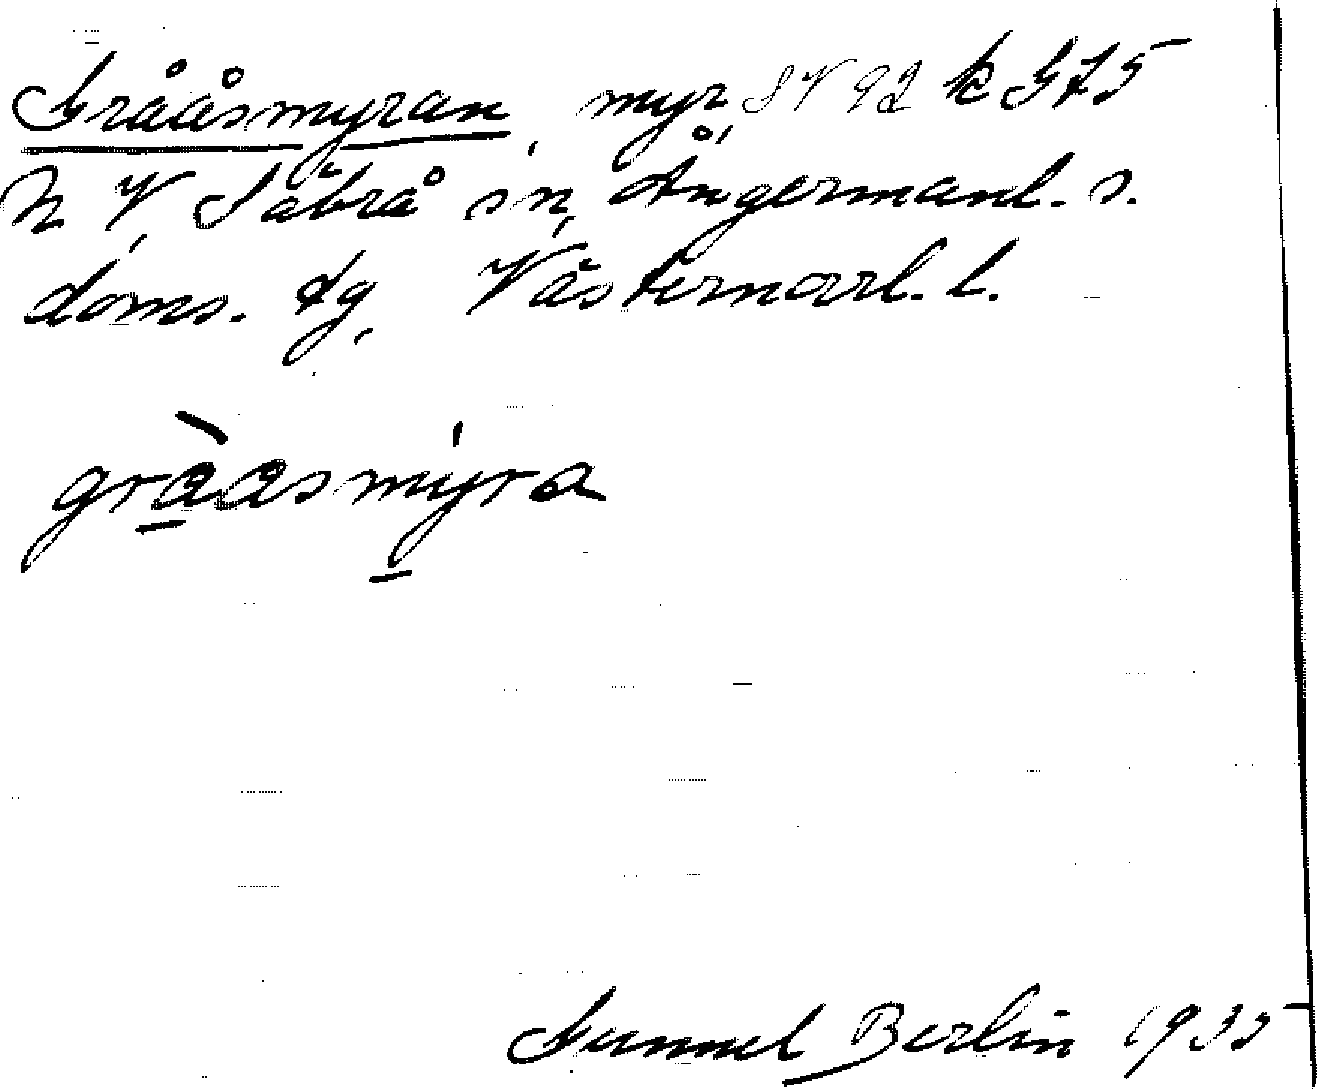 Grååsmyran, myr, SV 92 k G75
N V Säbrå sn, Ångermanl. s.
doms. dg, Västernorrl. l.
gràasmyra
Gunnel Berlin 1935